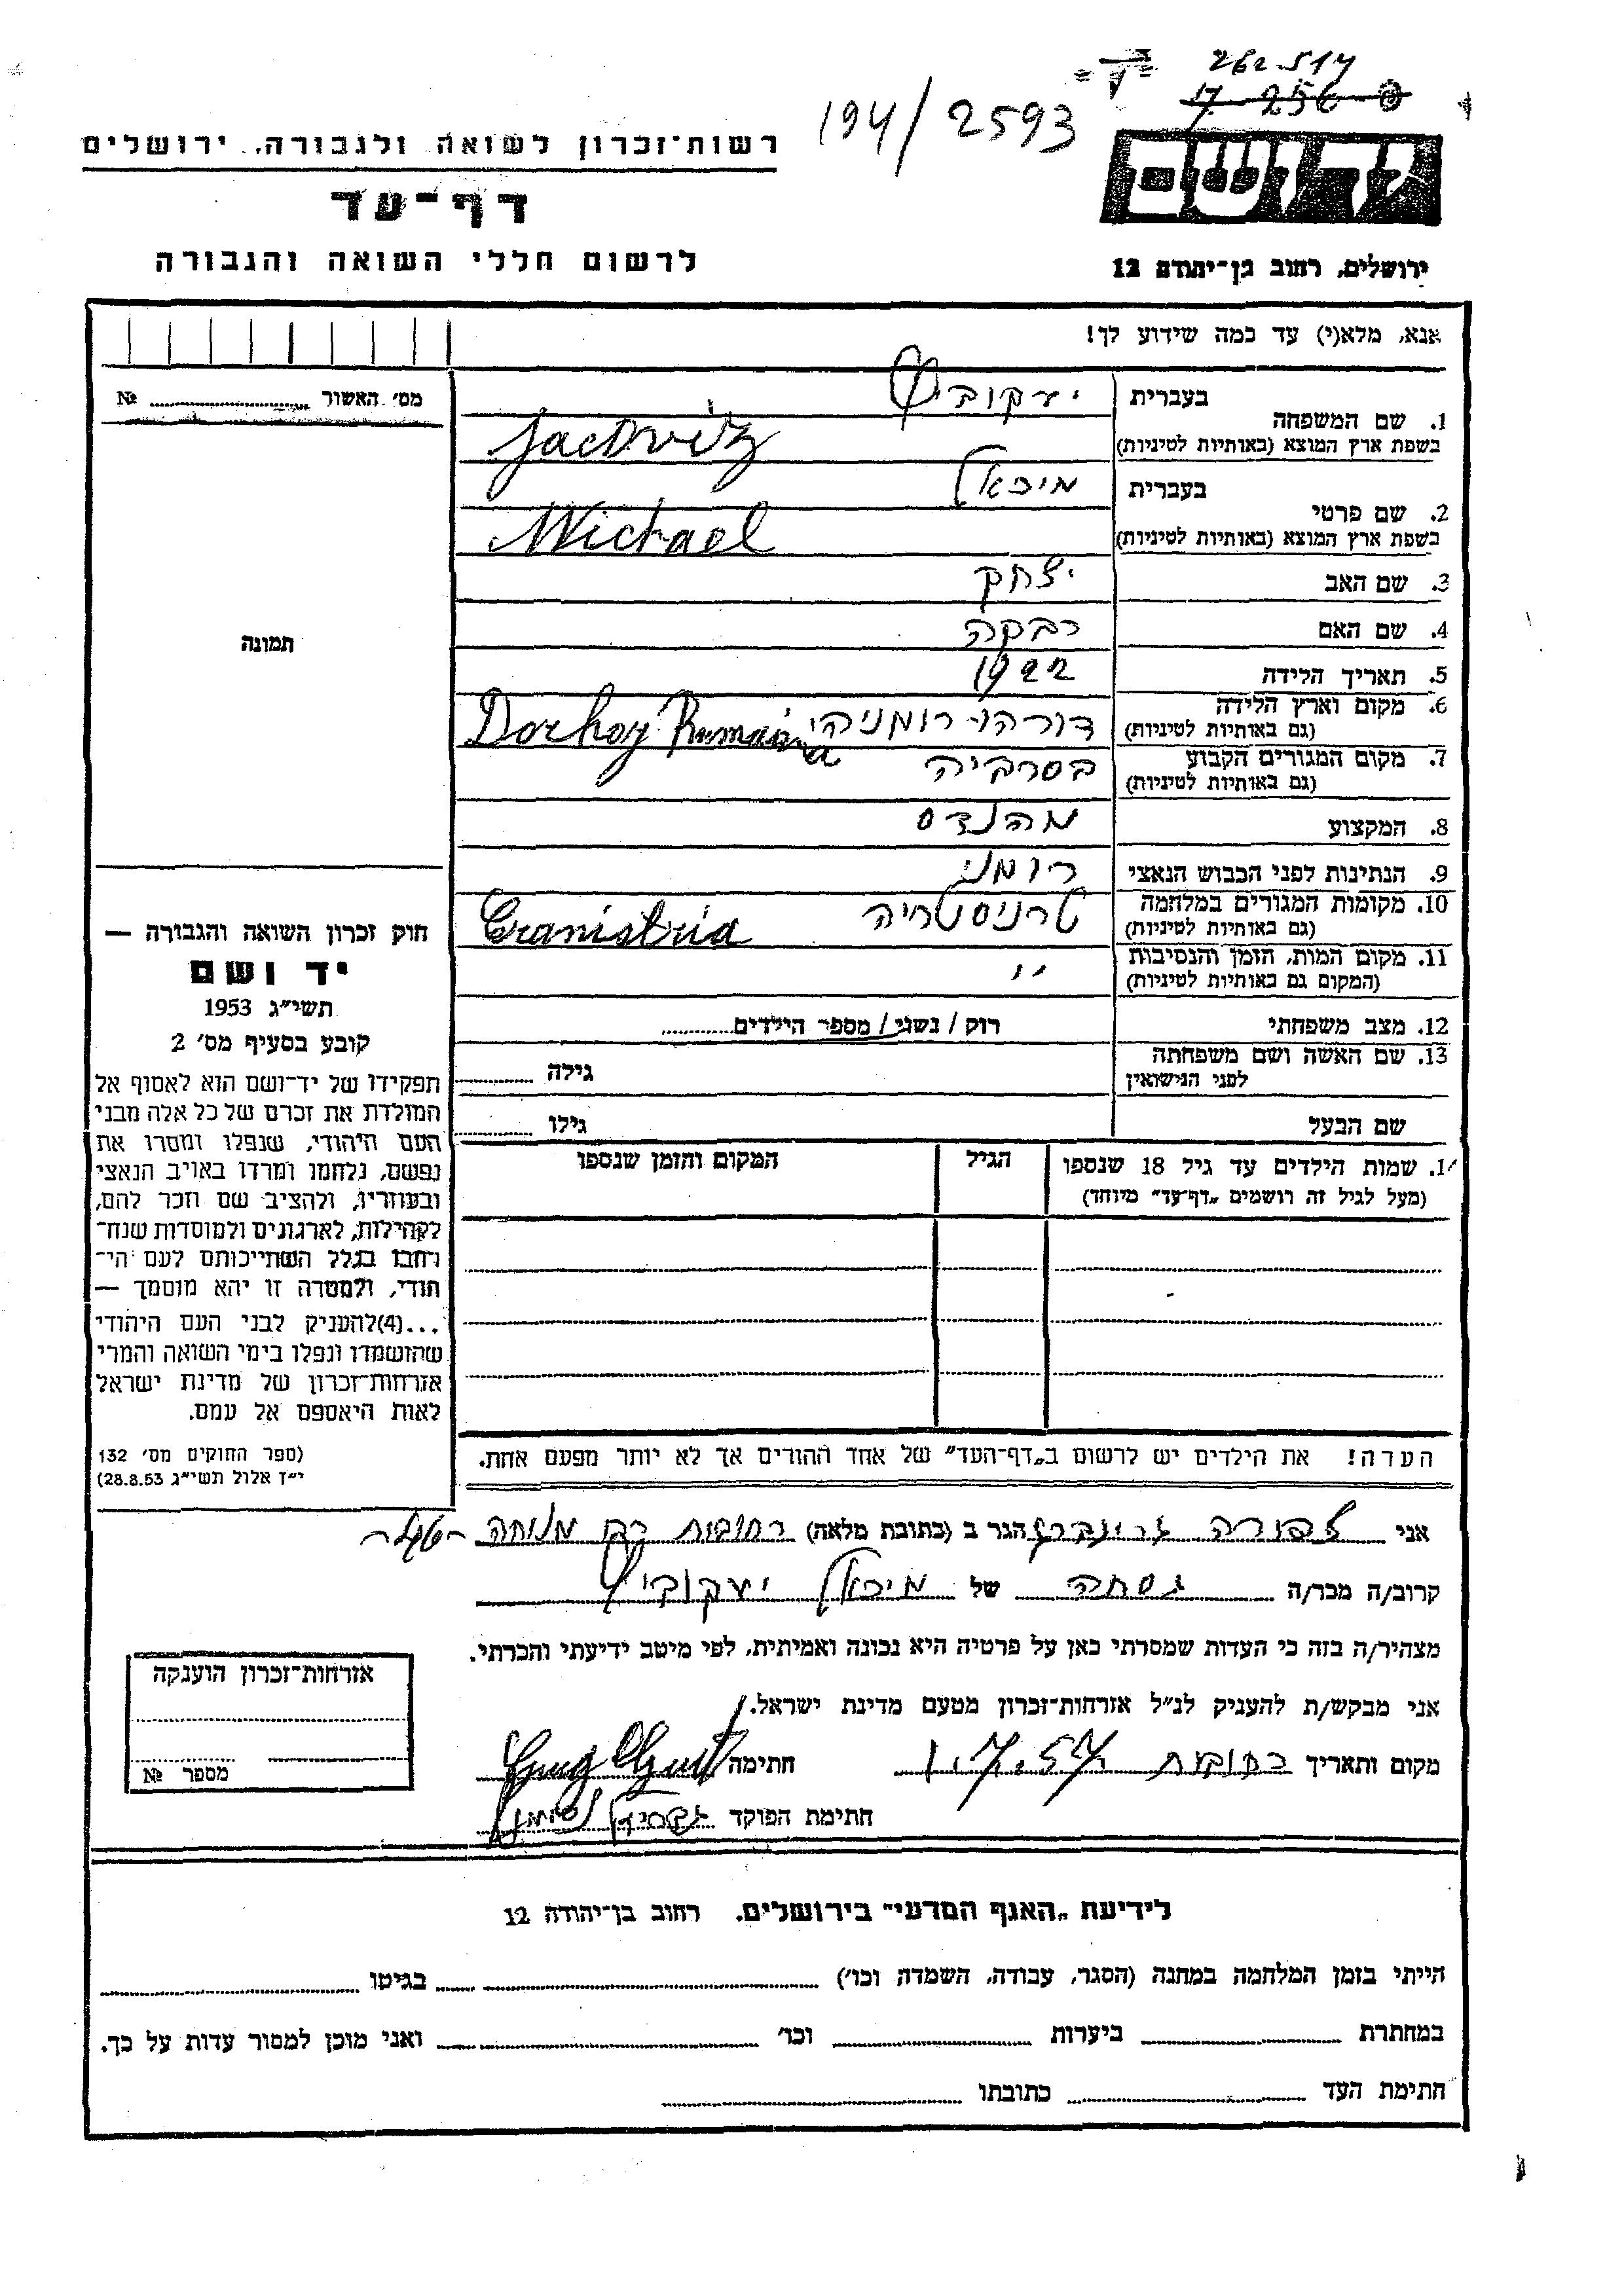 262.517
17-256-0
194/2593
רשות־זכרון לשואה ולגבורה, ירושלים
יד ושם
דף־עד
לרשום חללי השואה והגבורה
ירושלים, רחוב בן־יהודה 12
אנא, מלא(י) עד כמה שידוע לך!
מס׳ האשור № 
1. שם המשפחה בעברית יעקוביץ
בשפת ארץ המוצא (באותיות לטיניות) Jacoviz
2. שם פרטי בעברית מיכאל
בשפת ארץ המוצא (באותיות לטיניות) Michael
3. שם האב יצחק
4. שם האם רבקה
תמונה
5. תאריך הלידה 1922
6. מקום וארץ הלידה דורהוי רומניה Dorhoy Rumania
(גם באותיות לטיניות)
7. מקום המגורים הקבוע בסרביה
(גם באותיות לטיניות)
8. המקצוע מהנדס
9. הנתינות לפני הכבוש הנאצי רומני
10. מקומות המגורים במלחמה טרניסטריה Tranistria
(גם באותיות לטיניות)
11. מקום המות, הזמן והנסיבות "
(המקום גם באותיות לטיניות)
12. מצב משפחתי רוק / נשוי / מספר הילדים
13. שם האשה ושם משפחתה גילה
לפני הנישואין
שם הבעל גילו
1. שמות הילדים עד גיל 18 שנספו הגיל המקום והזמן שנספו
(מעל לגיל זה רושמים „דף־עד״ מיוחד)
הערה! את הילדים יש לרשום ב„דף־העד״ של אחד ההורים אך לא יותר מפעם אחת.
חוק זכרון השואה והגבורה —
יד ושם
תשי״ג 1953
קובע בסעיף מס׳ 2
תפקידו של יד־ושם הוא לאסוף אל
המולדת את זכרם של כל אלה מבני
העם היהודי, שנפלו ומסרו את
נפשם, נלחמו ומרדו באויב הנאצי
ובעוזריו, ולהציב שם וזכר להם,
לקהילות, לארגונים ולמוסדות שנח־
רחבו בגלל השתייכותם לעם הי־
הודי, ולמטרה זו יהא מוסמך —
...(4)להעניק לבני העם היהודי
שהושמדו ונפלו בימי השואה והמרי
אזרחות־זכרון של מדינת ישראל
לאות היאספם אל עמם.
(ספר החוקים מס׳ 132
י״ז אלול תשי״ג 28.8.53)
אני צפורה גרינברג הגר ב (כתובת מלאה) רחובות רח מנוחה
קרוב/ה מכר/ה גסחה של מיכאל יעקוביץ
מצהיר/ה בזה כי העדות שמסרתי כאן על פרטיה היא נכונה ואמיתית, לפי מיטב ידיעתי והכרתי.
אני מבקש/ת להעניק לנ״ל אזרחות־זכרון מטעם מדינת ישראל.
מקום ותאריך רחובות 1.7.57 חתימה
חתימת הפוקד
אזרחות־זכרון הוענקה
מספר №
לידיעת „האגף המדעי״ בירושלים. רחוב בן־יהודה 12
הייתי בזמן המלחמה במחנה (הסגר, עבודה, השמדה וכו׳) בגיטו
במחתרת ביערות וכו׳ ואני מוכן למסור עדות על כך.
חתימת העד כתובתו